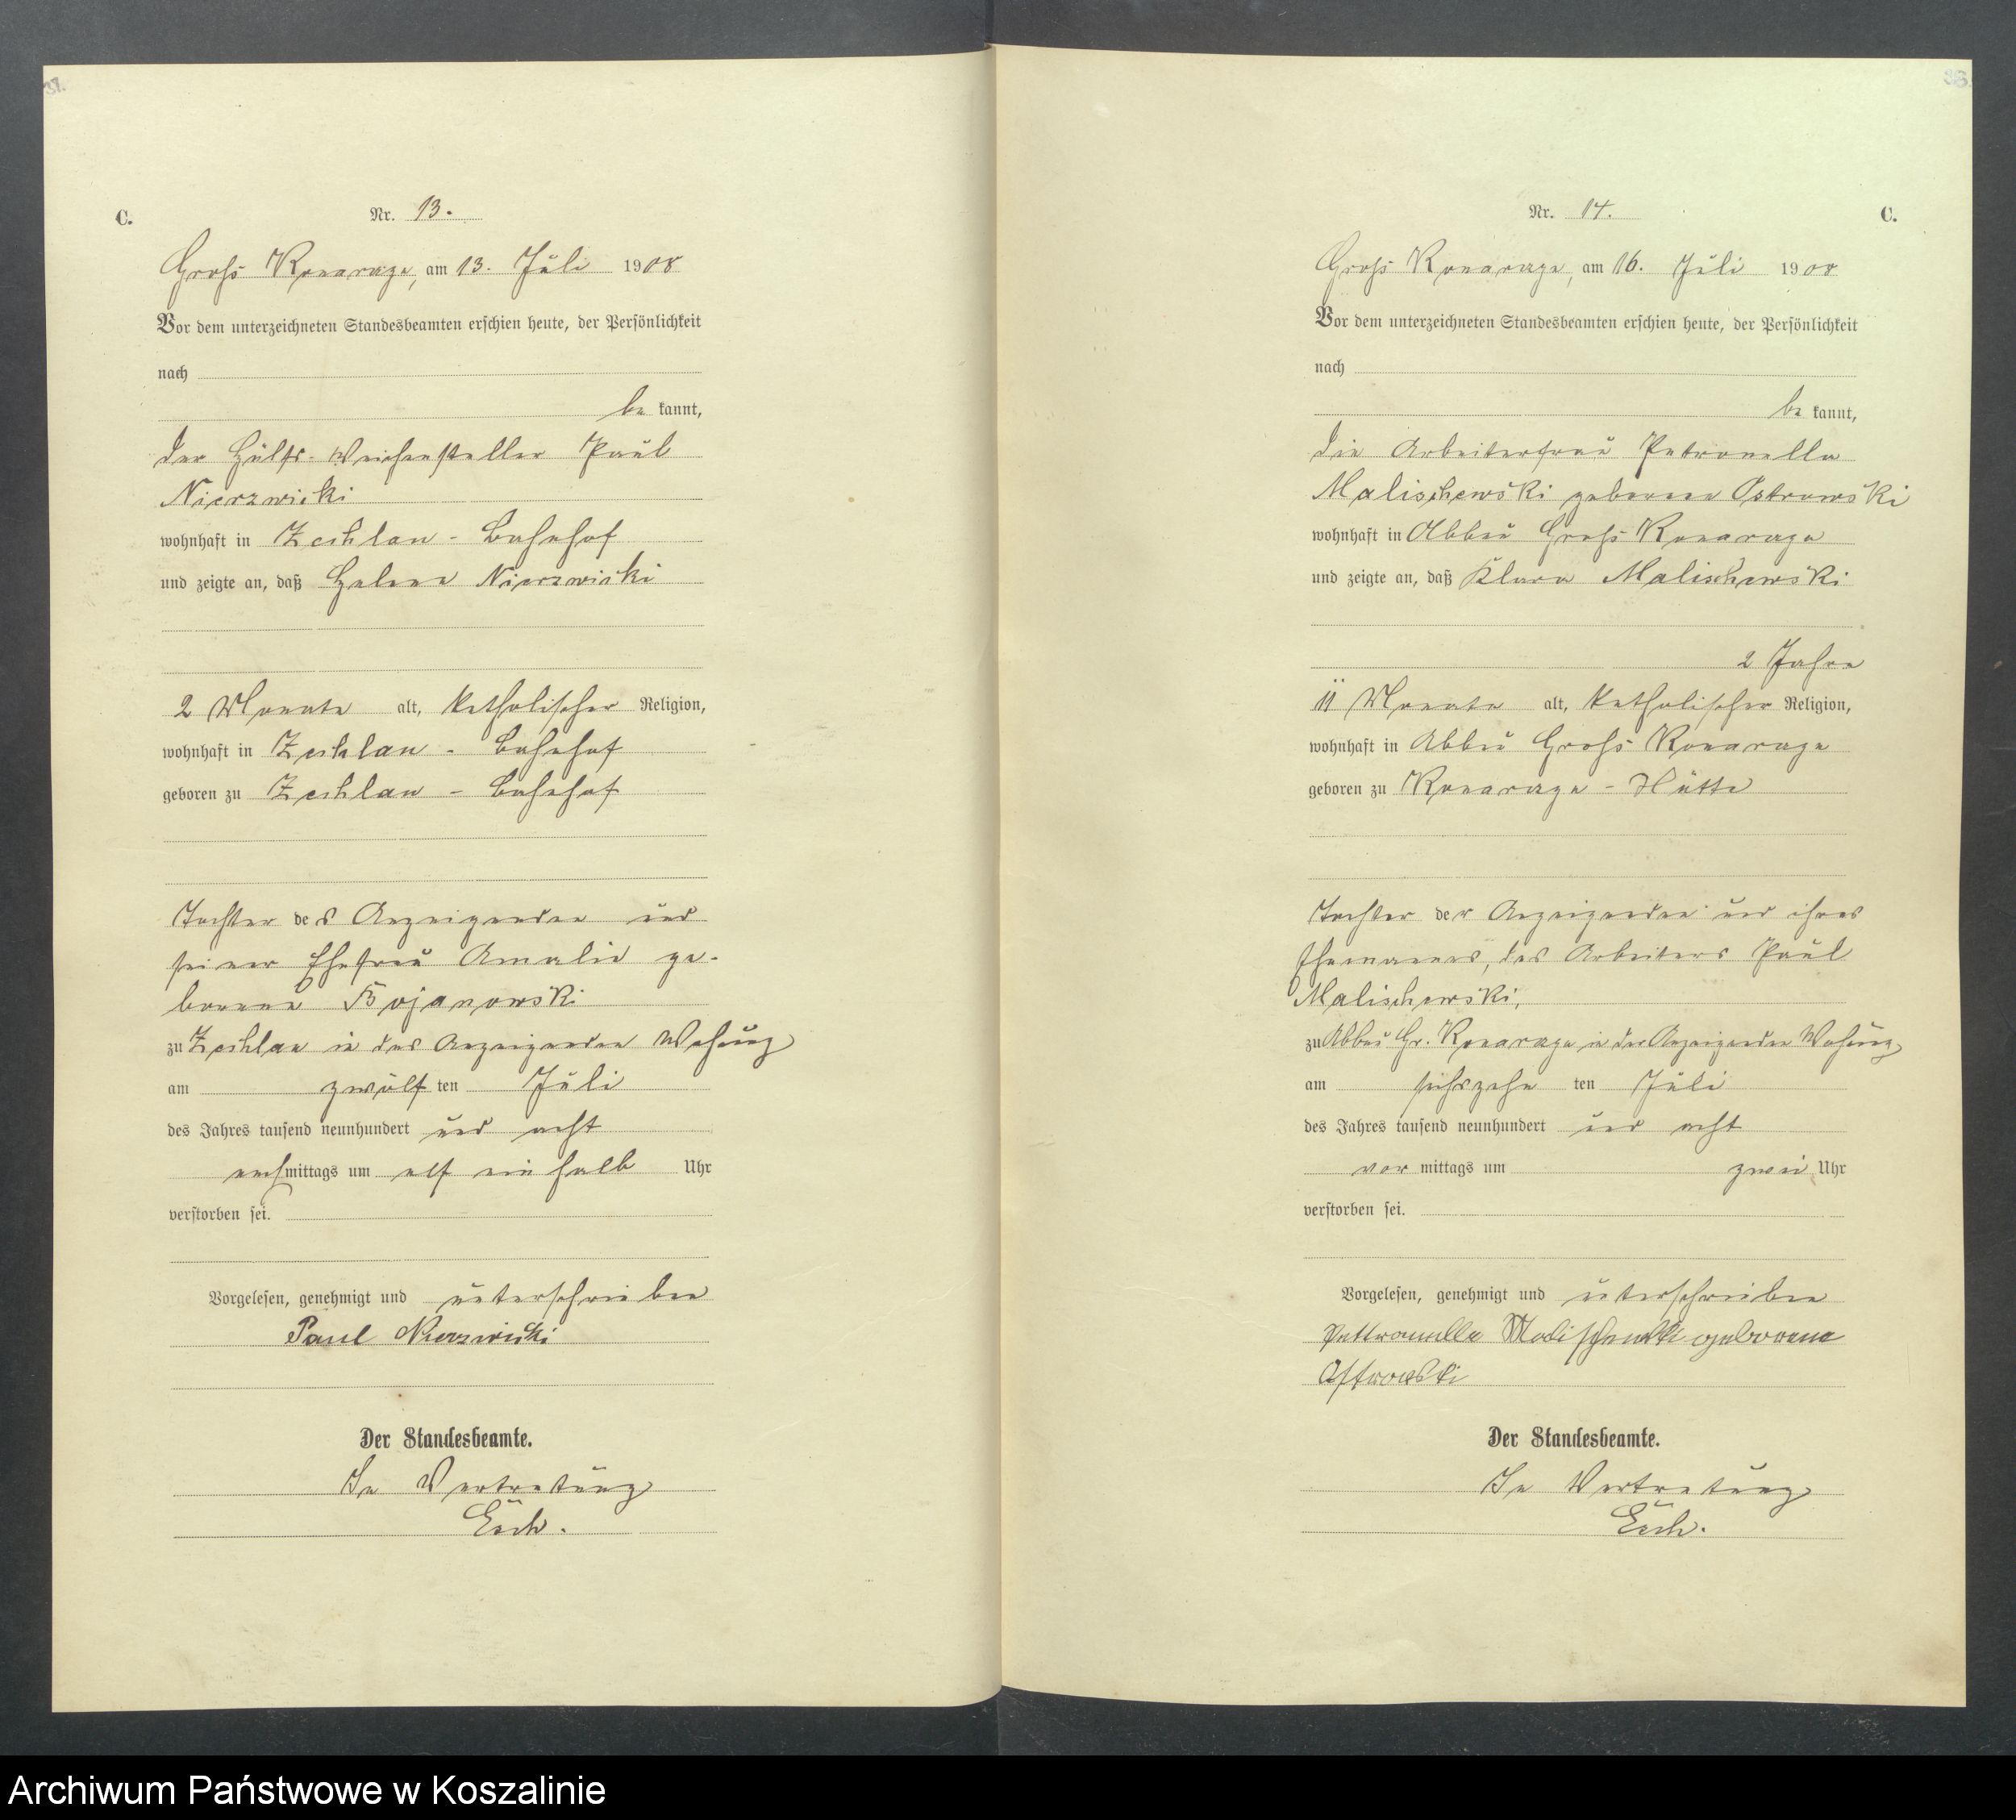 37.
C.
Nr. 13.
Gross Konarczyn, am 13. Juli 1908
Vor dem unterzeichneten Standesbeamten erschien heute, der Persönlichkeit
nach
be kannt,
der Hülfs-Weichensteller Paul
Nierzwicki
wohnhaft in Zechlau - Bahnhof
und zeigte an, daß Helene Nierzwicki
2 Monate alt, katholischer Religion,
wohnhaft in Zechlau - Bahnhof
geboren zu Zechlau - Bahnhof
Tochter des Anzeigenden und
seiner Ehefrau Amalie ge-
borene Bojanowski
zu Zechlau in des Anzeigenden Wohung
am zwölf ten Juli
des Jahres tausend neunhundert und acht
nachmittags um elf ein halb Uhr
verstorben sei.
Vorgelesen, genehmigt und unterschrieben
Paul Nierzwicki
Der Standesbeamte.
In Vertretung
38.
C.
Nr. 14.
Gross Konarczyn, am 16. Juli 1908
Vor dem unterzeichneten Standesbeamten erschien heute, der Persönlichkeit
nach
be kannt,
die Arbeiterfrau Petronella
Malischewski geborene Ostrowski
wohnhaft in Abbau Gross Konarczyn
und zeigte an, daß Klara Malischewski
2 Jahre
11 Monate alt, katholischer Religion,
wohnhaft in Abbau Gross Konarczyn
geboren zu Konarczyn - Hütte
Tochter der Anzeigenden und ihres
Ehemannes, des Arbeiters Paul
Malischewski,
zu Abbau Gr. Konarczyn in der Anzeigenden Wohung
am sechszehn ten Juli
des Jahres tausend neunhundert und acht
vor mittags um zwei Uhr
verstorben sei.
Vorgelesen, genehmigt und unterschrieben
Pettronella Malischewski geborene
Ostrowski
Der Standesbeamte.
In Vertretung
Archiwum Państwowe w Koszalinie